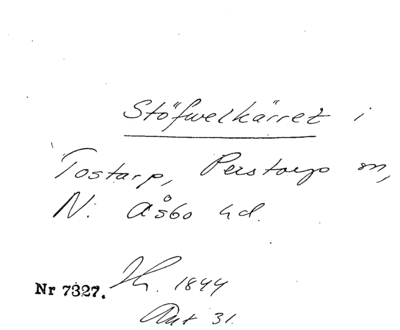 Stöfwelkärret i
Tostarp, Perstorps sn,
N. Åsbo hd.
Nr 7327. 1844
Akt 31.